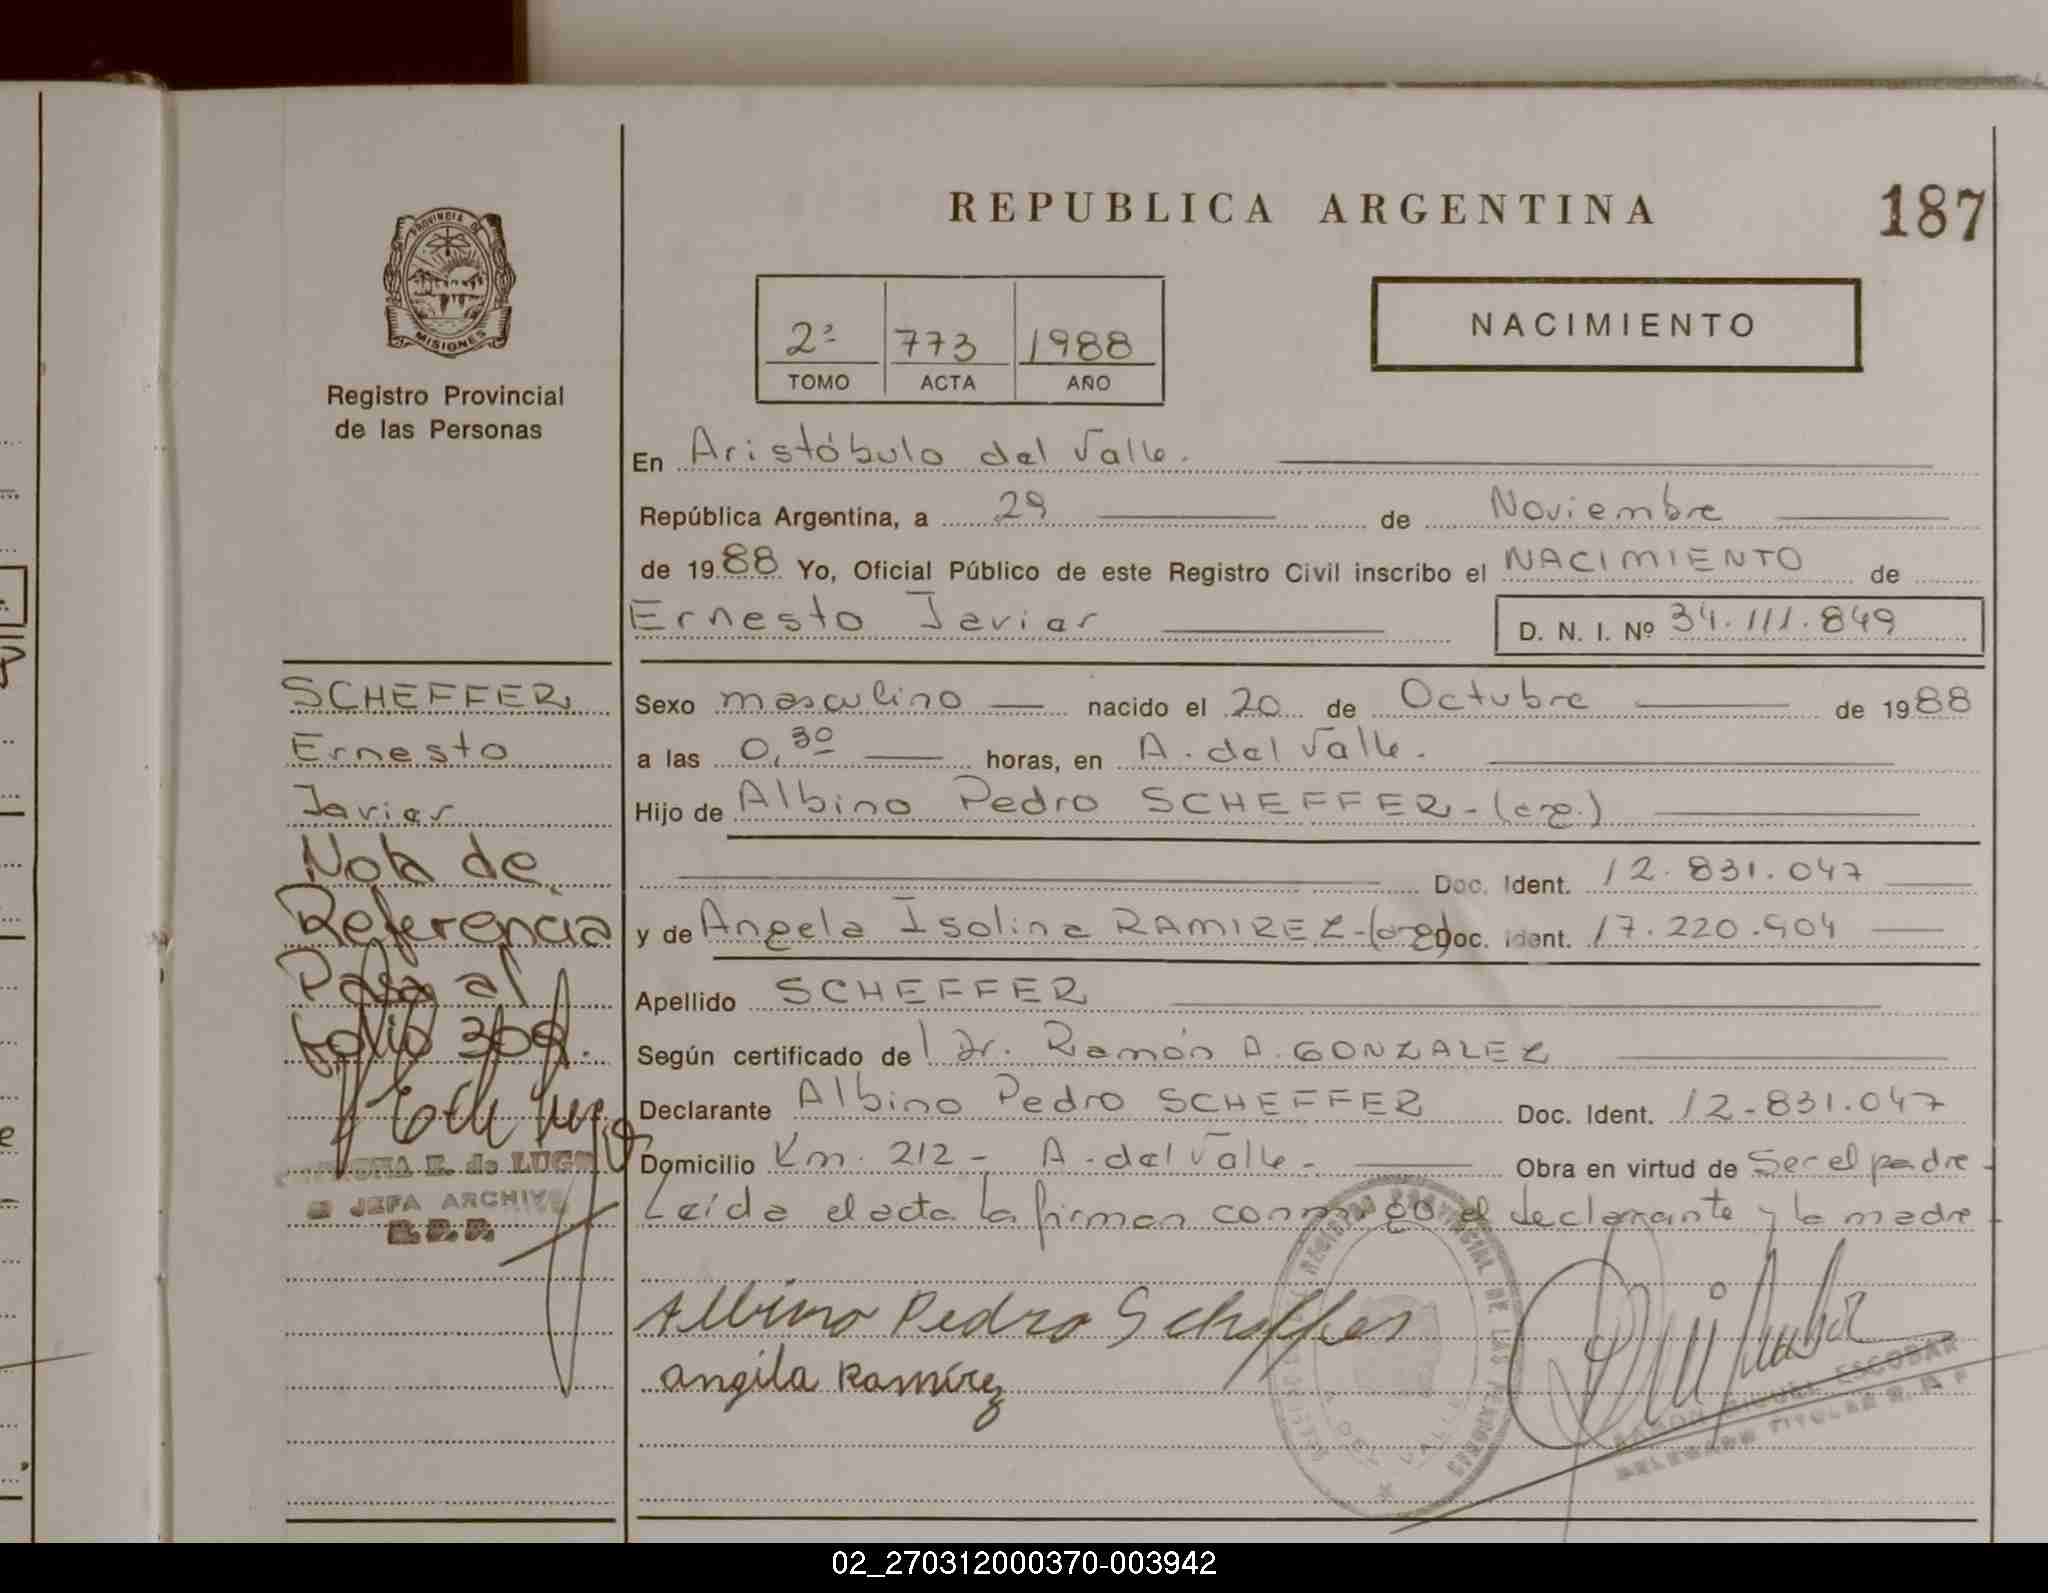 PROVINCIA DE
MISIONES
Registro Provincial
de las Personas
REPUBLICA ARGENTINA
187
2ª 773 1988
TOMO ACTA AÑO
NACIMIENTO
En Aristóbulo del Valle.
República Argentina, a 29 de Noviembre
de 1988 Yo, Oficial Público de este Registro Civil inscribo el NACIMIENTO de
Ernesto Javier
D. N. I. Nº 34.111.849
SCHEFFER
Ernesto
Javier
Nota de
Referencia
Pasa al
folio 309.
E. de LUGO
JEFA ARCHIVO
R.P.P.
Sexo masculino nacido el 20 de Octubre de 1988
a las 0,30 horas, en A. del Valle.
Hijo de Albino Pedro SCHEFFER-(arg.)
Doc. Ident. 12.831.047
y de Angela Isolina RAMIREZ-(arg) Doc. Ident. 17.220.904
Apellido SCHEFFER
Según certificado del Dr. Ramón A. GONZALEZ
Declarante Albino Pedro SCHEFFER Doc. Ident. 12-831.047
Domicilio Km. 212 - A. del Valle - Obra en virtud de Ser el padre -
Leída el acta la firman conmigo el declarante y la madre -
Albino Pedro Scheffer
Angila Ramírez
REGISTRO PROVINCIAL DE LAS PERSONAS
A. DEL VALLE
RAMON MIGUEL ESCOBAR
DELEGADO TITULAR R. P. P.
02_270312000370-003942